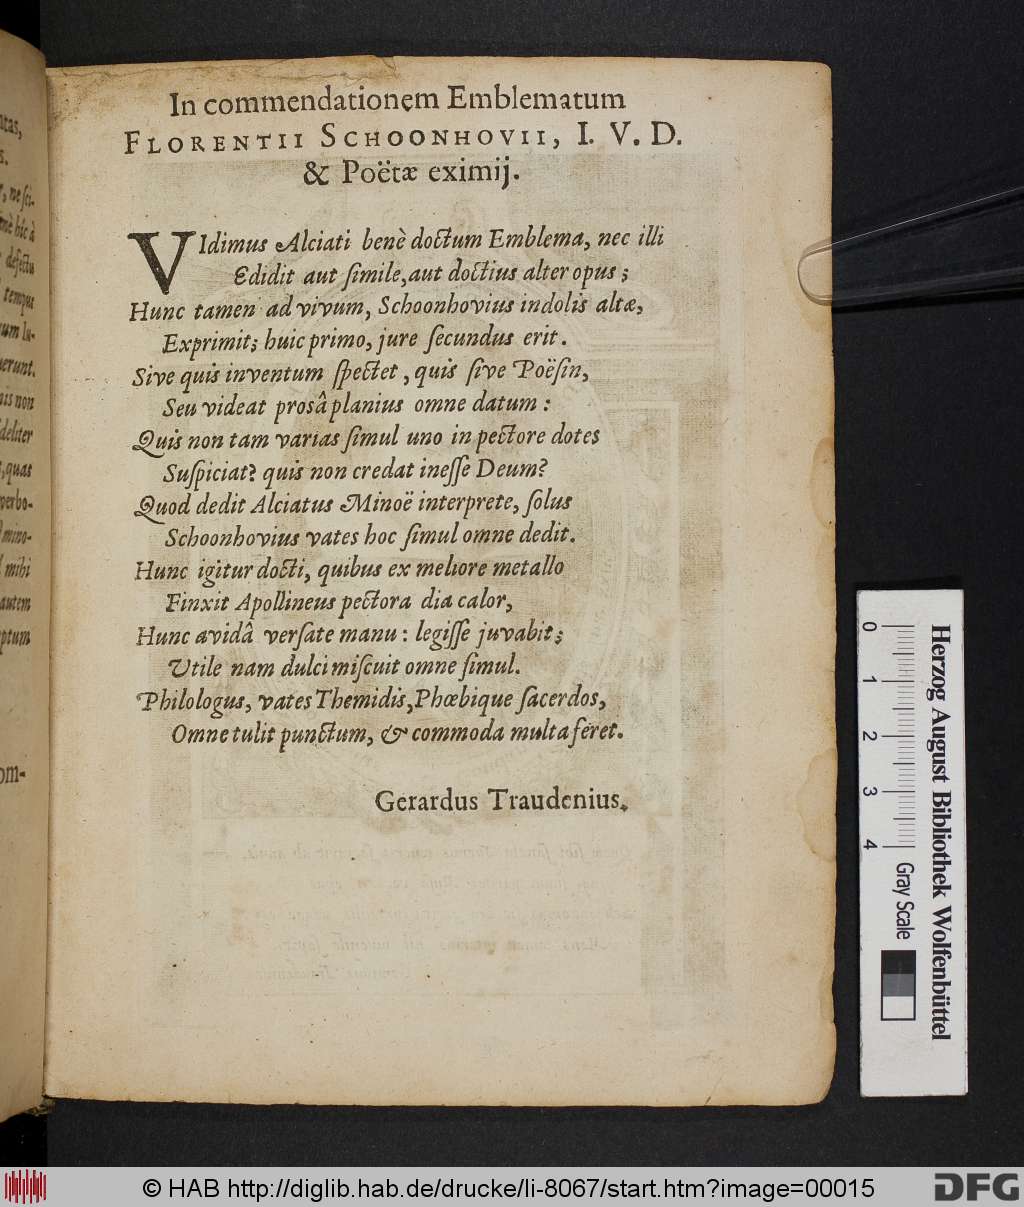 In commendationem Emblematum
FLORENTII SCHOONHOVII, I. V. D.
& Poëtæ eximij.
VIdimus Alciati benè doctum Emblema, nec illi
Edidit aut simile, aut doctius alter opus;
Hunc tamen ad vivum, Schoonhovius indolis altæ,
Exprimit; huic primo, jure secundus erit.
Sive quis inventum spectet, quis sive Poësin,
Seu videat prosâ planius omne datum:
Quis non tam varias simul uno in pectore dotes
Suspiciat? quis non credat inesse Deum?
Quod dedit Alciatus Minoë interprete, solus
Schoonhovius vates hoc simul omne dedit.
Hunc igitur docti, quibus ex meliore metallo
Finxit Apollineus pectora dia calor,
Hunc avidâ versate manu: legisse juvabit;
Utile nam dulci miscuit omne simul.
Philologus, vates Themidis, Phœbique sacerdos,
Omne tulit punctum, & commoda multa feret.
Gerardus Traudenius.
tas,
s.
, ne sci-
nè hîc à
defectu
tempus
um lu-
erunt.
is non
deliter
, quas
verbo-
mino-
mihi
autem
ptum
om-
0 1 2 3 4
Gray Scale
Herzog August Bibliothek Wolfenbüttel
© HAB http://diglib.hab.de/drucke/li-8067/start.htm?image=00015
DFG